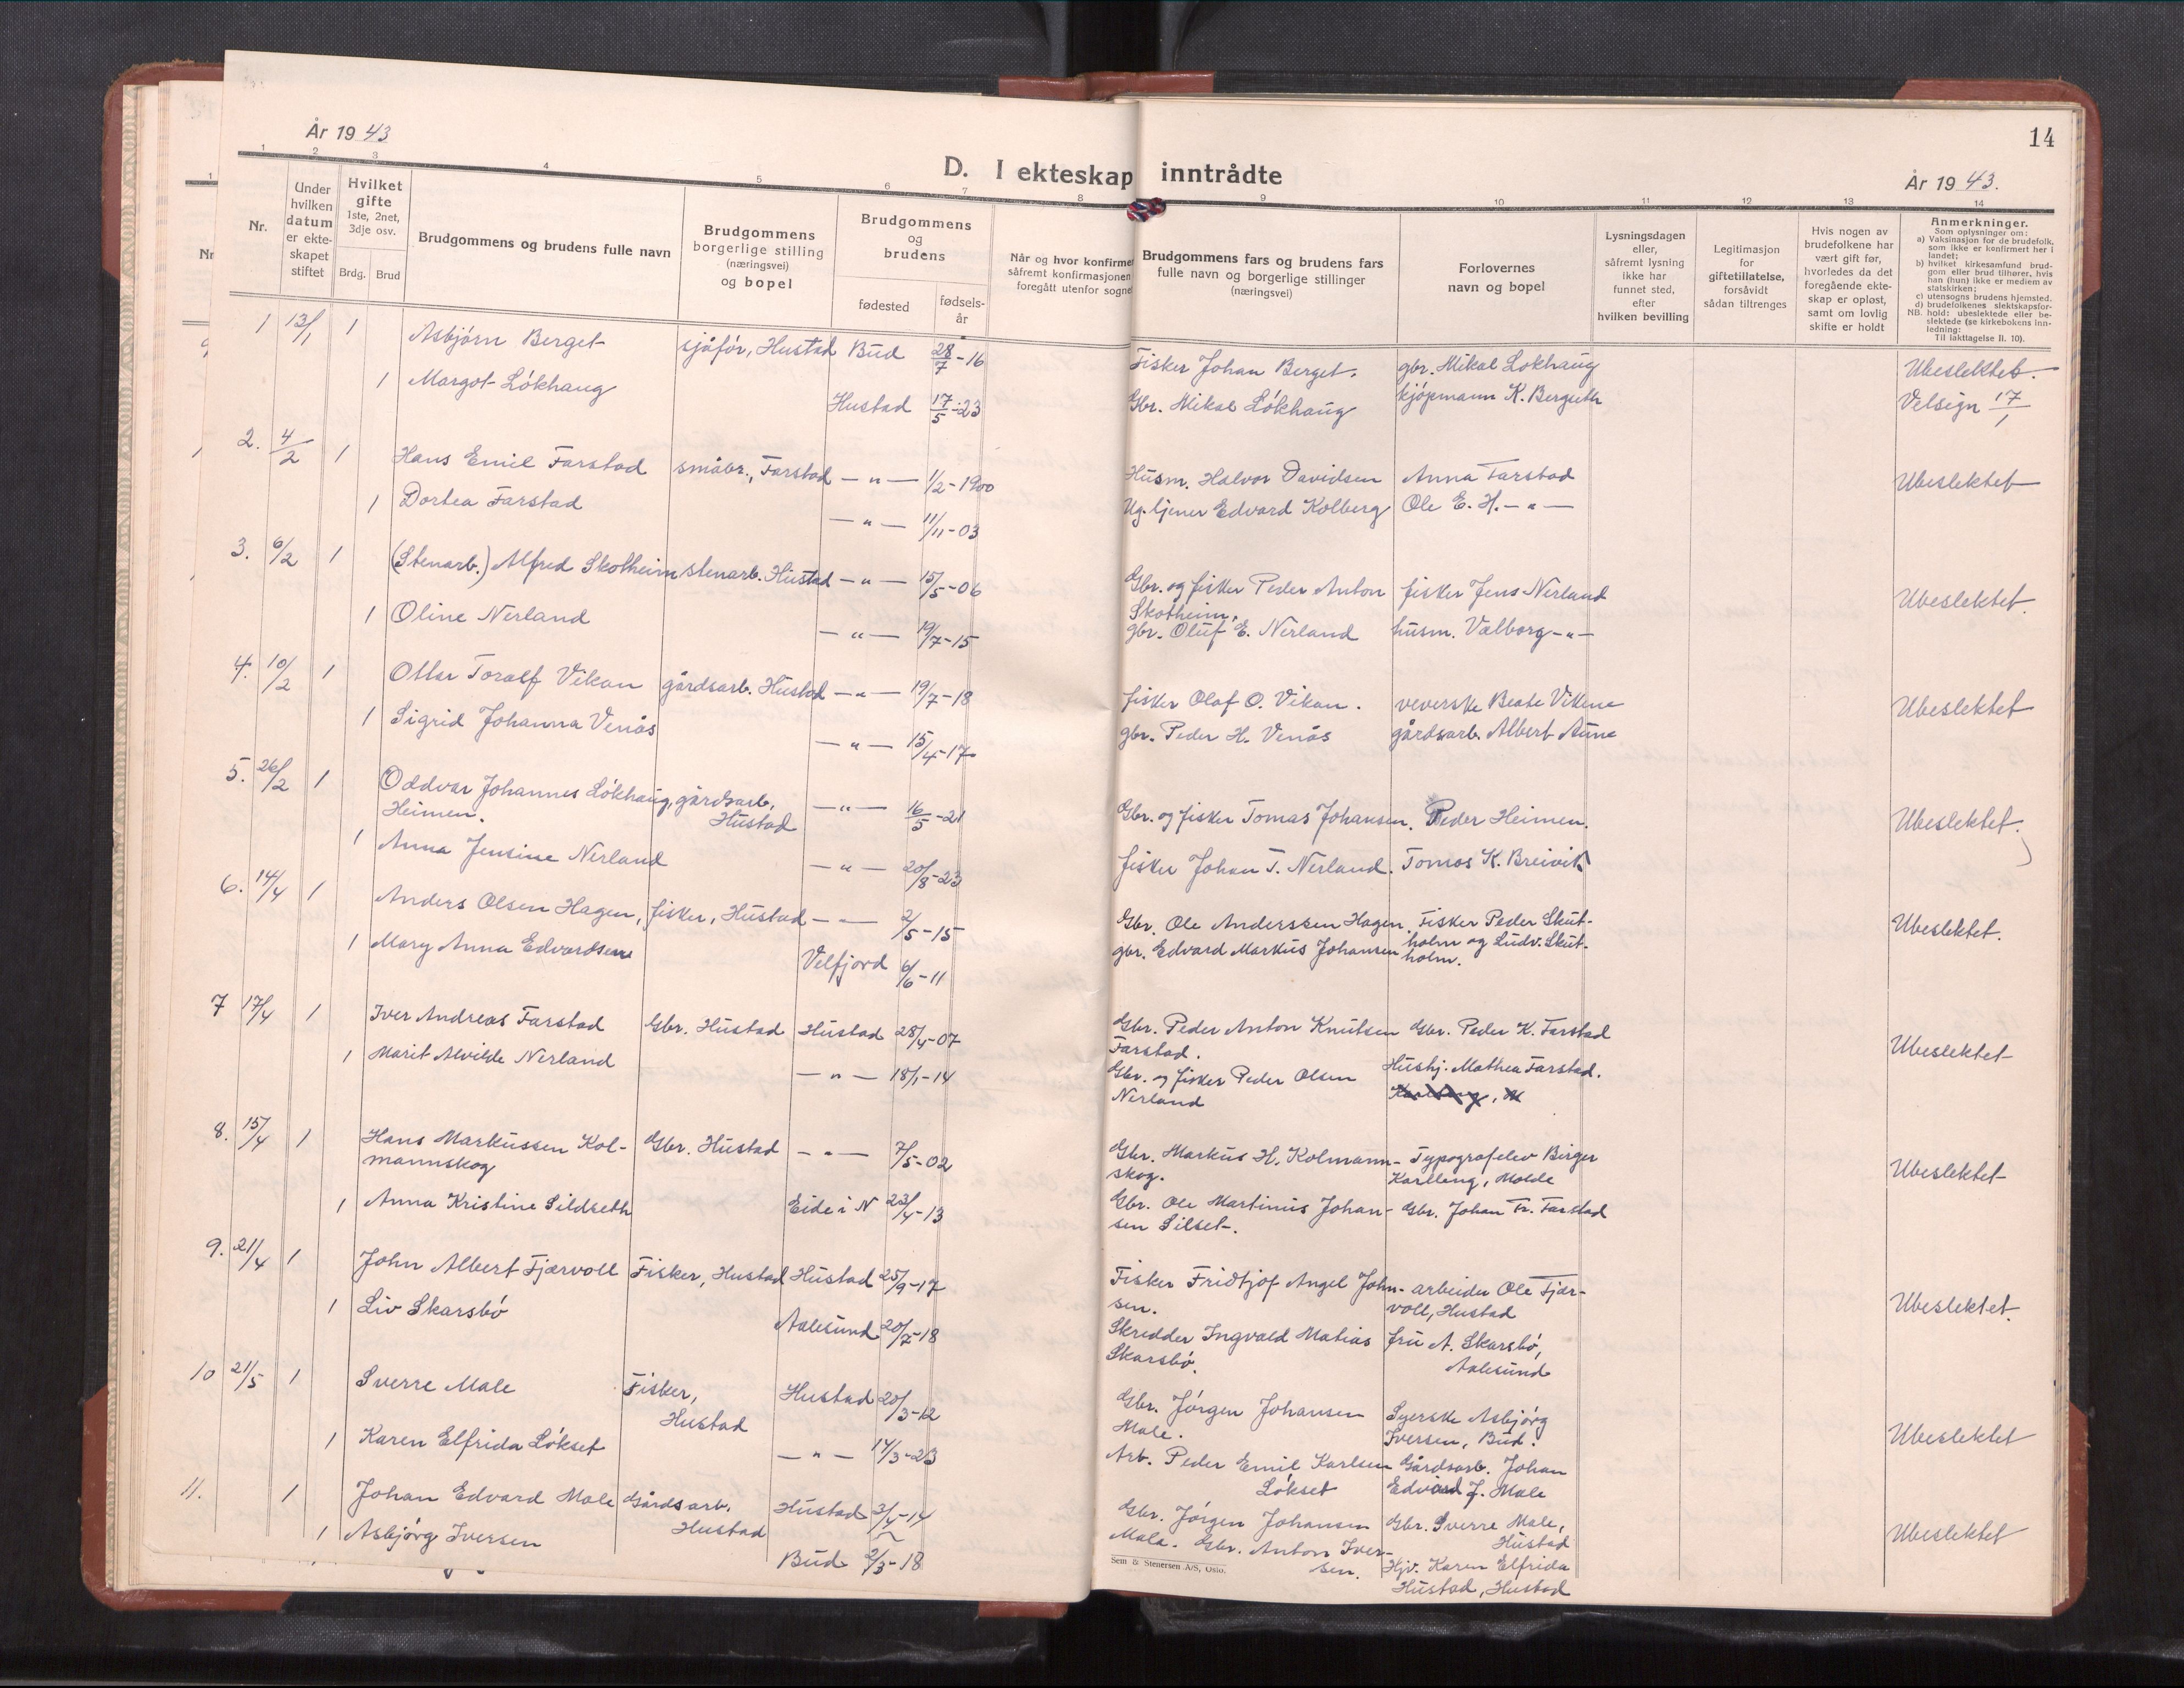 År 1943
D. I ekteskap inntrådte
14
År 1943.
1 2 3 4 5 6 7 8 9 10 11 12 13 14
Nr.
Under
hvilken
datum
er ekte-
skapet
stiftet
Hvilket
gifte
1ste, 2net,
3dje osv.
Brdg. Brud
Brudgommens og brudens fulle navn
Brudgommens
borgerlige stilling
(næringsvei)
og bopel
Brudgommens
og
brudens
fødested
fødsels-
år
Når og hvor konfirme
såfremt konfirmasjonen
foregått utenfor sogne
Brudgommens fars og brudens fars
fulle navn og borgerlige stillinger
(næringsvei)
Forlovernes
navn og bopel
Lysningsdagen
eller,
såfremt lysning
ikke har
funnet sted,
efter
hvilken bevilling
Legitimasjon
for
giftetillatelse,
forsåvidt
sådan tiltrenges
Hvis nogen av
brudefolkene har
vært gift før,
hvorledes da det
foregående ekte-
skap er opløst,
samt om lovlig
skifte er holdt
Anmerkninger.
Som oplysninger om:
a) Vaksinasjon for de brudefolk,
som ikke er konfirmert her i
landet;
b) hvilket kirkesamfund brud-
gom eller brud tilhører, hvis
han (hun) ikke er medlem av
statskirken;
c) utensogns brudens hjemsted.
d) brudefolkenes slektskapsfor-
NB. hold: ubeslektede eller be-
slektede (se kirkebokens inn-
ledning:
Til iakttagelse II. 10).
1 13/1 1 Asbjørn Berget sjåfør, Hustad Bud 28/7-16 Fisker Johan Berget. gbr. Mikal Løkhaug Ubeslektet.
1 Margot Løkhaug Hustad 17/5-23 Gbr. Mikal Løkhaug kjøpmann K. Bergseth Velsign 17/1
2. 4/2 1 Hans Emil Farstad småbr., Farstad -"- 1/2-1900 Husm. Halvor Davidsen Anna Farstad Ubeslektet
1 Dortea Farstad -"- 11/11-03 Ug. tjener Edvard Kolberg Ole E. H. -"-
3. 6/2 1 (Stenarb.) Alfred Skotheim stenarb. Hustad -"- 15/5-06 Gbr. og fisker Peder Anton fisker Jens Nerland Ubeslektet.
Skotheim,
1 Oline Nerland -"- 19/7-15 gbr. Oluf E. Nerland husm. Valborg -"-
4. 10/2 1 Ottar Toralf Vikan gårdsarb. Hustad -"- 19/7-18 fisker Olaf O. Vikan. veverske Beate Vikene Ubeslektet
1 Sigrid Johanna Venås -"- 15/4-17 gbr. Peder H. Venås gårdsarb. Albert Aune
5. 26/2 1 Oddvar Johannes Løkhaug, gårdsarb. -"- 16/5-21 Gbr. og fisker Tomas Johansen. Peder Heimen. Ubeslektet.
Heimen. Hustad
1 Anna Jensine Nerland -"- 20/8-23 fisker Johan T. Nerland. Tomas K. Breivik
6. 14/4 1 Anders Olsen Hagen, fisker, Hustad -"- 2/5-15 Gbr. Ole Anderssen Hagen. Fisker Peder Skut- Ubeslektet.
1 Mary Anna Edvardsen Velfjord 6/6-11 gbr. Edvard Markus Johansen holm og Ludv. Skut-
holm.
7 17/4 1 Iver Andreas Farstad Gbr. Hustad Hustad 28/4-07 Gbr. Peder Anton Knutsen Gbr. Peder K. Farstad Ubeslektet
Farstad. Hushj. Mathea Farstad.
1 Marit Alvilde Nerland -"- 18/1-14 Gbr. og fisker Peder Olsen
Nerland
8. 15/4 1 Hans Markussen Kol- Gbr. Hustad -"- 7/5-02 Gbr. Markus H. Kolmann- Typografelev Birger Ubeslektet
mannskog skog. Karlleng, Molde
1 Anna Kristine Sildseth Eide i N 23/4-13 Gbr. Ole Martinus Johan- Gbr. Johan Fr. Farstad
sen Silset.
9. 21/4 1 John Albert Fjærvoll Fisker, Hustad Hustad 25/9-17 Fisker Fridtjof Angel John- arbeider Ole Fjær- Ubeslektet.
sen. voll, Hustad
1 Liv Skarsbø Aalesund 20/7-18 Skredder Ingvald Matias fru A. Skarsbø,
Skarsbø. Aalesund
10 21/5 1 Sverre Male Fisker, Hustad 20/3-12 Gbr. Jørgen Johansen Syerske Asbjørg Ubeslektet
Hustad Male. Iversen, Bud.
1 Karen Elfrida Løkset -"- 14/3-23 Arb. Peder Emil Karlsen Gårdsarb. Johan
Løkset Edvard J. Male
11. 1 Johan Edvard Male Gårdsarb. Hustad 3/4-14 Gbr. Jørgen Johansen Gbr. Sverre Male, Ubeslektet
Hustad Male. Gbr. Anton Iver- Hustad
1 Asbjørg Iversen Bud 2/3-18 sen. Hjv. Karen Elfrida
Hustad, Hustad
Sem & Stenersen A/S, Oslo.